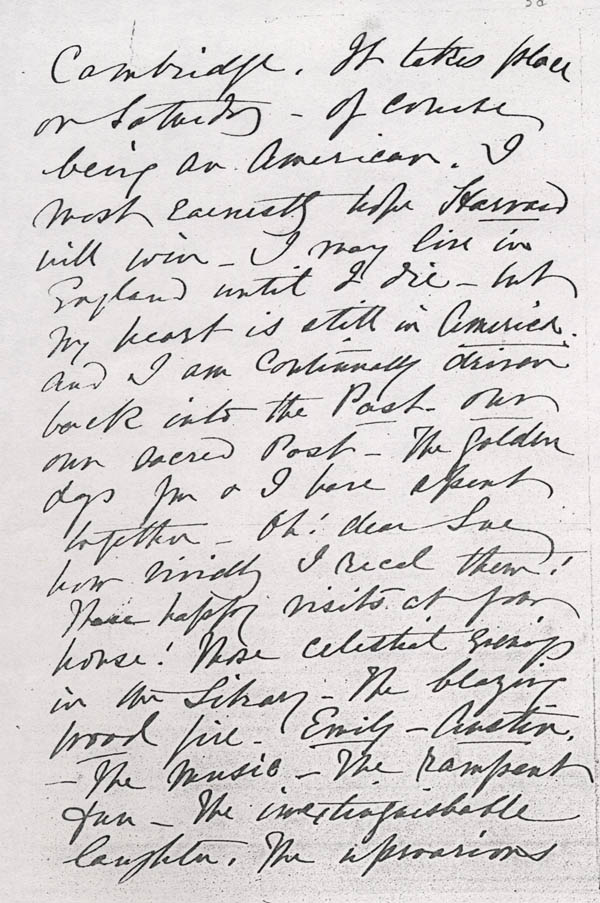 Cambridge. It takes place
on Saturday - of course
being an American. I
most earnestly hope Harvard
will win - I may live in
England until I die - but
my heart is still in America.
and I am continually driven
back into the Past - our
own sacred Past - The golden
days you & I have spent
together - Oh! dear Sue
how vividly I recal them!
Those happy visits at your
house! Those celestial evenings
in the Library - The blazing
wood fire - Emily - Austin.
- The music - The rampant
fun - The inextinguishable
laughter. The uproarious